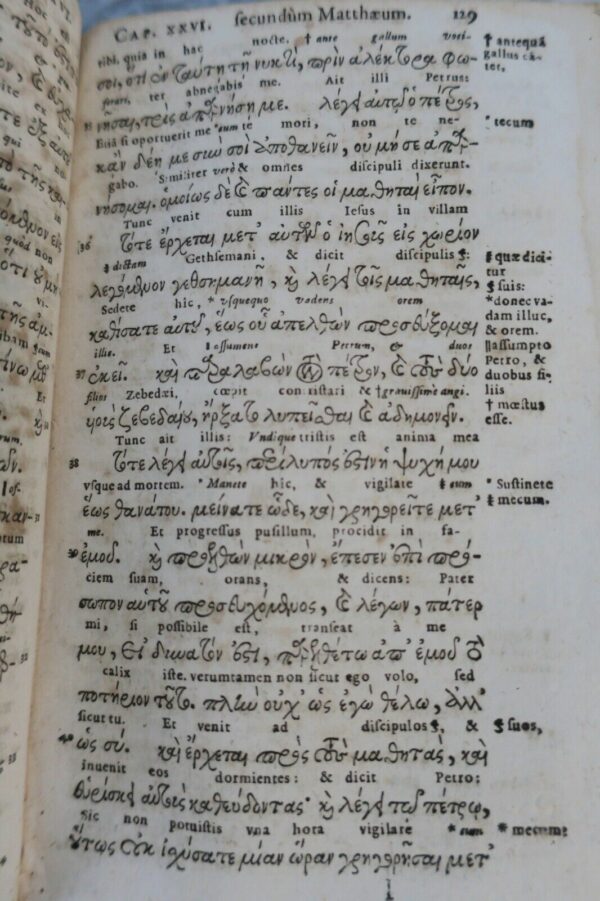 CAP. XXVI. secundùm Matthæum. 129
tibi, quia in hac nocte, † ante gallum voci-
σοι, ὅτι ἐν ταύτῃ τῇ νυκτὶ, πρὶν ἀλέκτορα φω-
† antequã
gallus cã-
tet,
ter abnegabis me. Ait illi Petrus:
νῆσαι, τρὶς ἀπαρνήσῃ με. λέγει αὐτῷ ὁ πέτρος,
Etiã si oportuerit me *cum te mori, non te ne-
* tecum
κἂν δέῃ με σὺν σοὶ ἀποθανεῖν, οὐ μή σε ἀπαρ-
gabo. Similiter verò & omnes discipuli dixerunt.
νήσομαι. ὁμοίως δὲ καὶ πάντες οἱ μαθηταὶ εἶπον.
Tunc venit cum illis Iesus in villam
36 τότε ἔρχεται μετ' αὐτῶν ὁ ἰησοῦς εἰς χωρίον
‡ dictam Gethsemani, & dicit discipulis §:
‡ quæ dici-
tur
§ suis:
λεγόμενον γεθσημανῆ, καὶ λέγει τοῖς μαθηταῖς,
Sedete hic, * vsquequo vadens orem
* donec va-
dam illuc,
& orem.
καθίσατε αὐτοῦ, ἕως οὗ ἀπελθὼν προσεύξωμαι
illic. Et ‖ assumens Petrum, & duos
‖ assumpto
Petro, &
duobus fi-
liis
37 ἐκεῖ. καὶ παραλαβὼν τὸν πέτρον, καὶ τοὺς δύο
filios Zebedæi, cœpit contristari & † gravissimè angi.
† mœstus
esse.
υἱοὺς ζεβεδαίου, ἤρξατο λυπεῖσθαι καὶ ἀδημονεῖν.
Tunc ait illis: Vndique tristis est anima mea
38 τότε λέγει αὐτοῖς, περίλυπός ἐστιν ἡ ψυχή μου
vsque ad mortem. * Manete hic, & vigilate ‡ cum
* Sustinete
‡ mecum.
ἕως θανάτου. μείνατε ὧδε, καὶ γρηγορεῖτε μετ'
me. Et progressus pusillum, procidit in fa-
39 ἐμοῦ. καὶ προελθὼν μικρὸν, ἔπεσεν ἐπὶ πρό-
ciem suam, orans, & dicens: Pater
σωπον αὐτοῦ προσευχόμενος, καὶ λέγων, πάτερ
mi, si possibile est, transeat à me
μου, εἰ δυνατόν ἐστι, παρελθέτω ἀπ' ἐμοῦ τὸ
calix iste. verumtamen non sicut ego volo, sed
ποτήριον τοῦτο. πλὴν οὐχ' ὡς ἐγὼ θέλω, ἀλλ'
sicut tu. Et venit ad discipulos §, &
§ suos,
40 ὡς σύ. καὶ ἔρχεται πρὸς τοὺς μαθητὰς, καὶ
inuenit eos dormientes: & dicit Petro:
εὑρίσκει αὐτοὺς καθεύδοντας· καὶ λέγει τῷ πέτρῳ,
Sic non potuistis vna hora vigilare * cum
* mecum:
οὕτως οὐκ ἰσχύσατε μίαν ὥραν γρηγορῆσαι μετ'
I